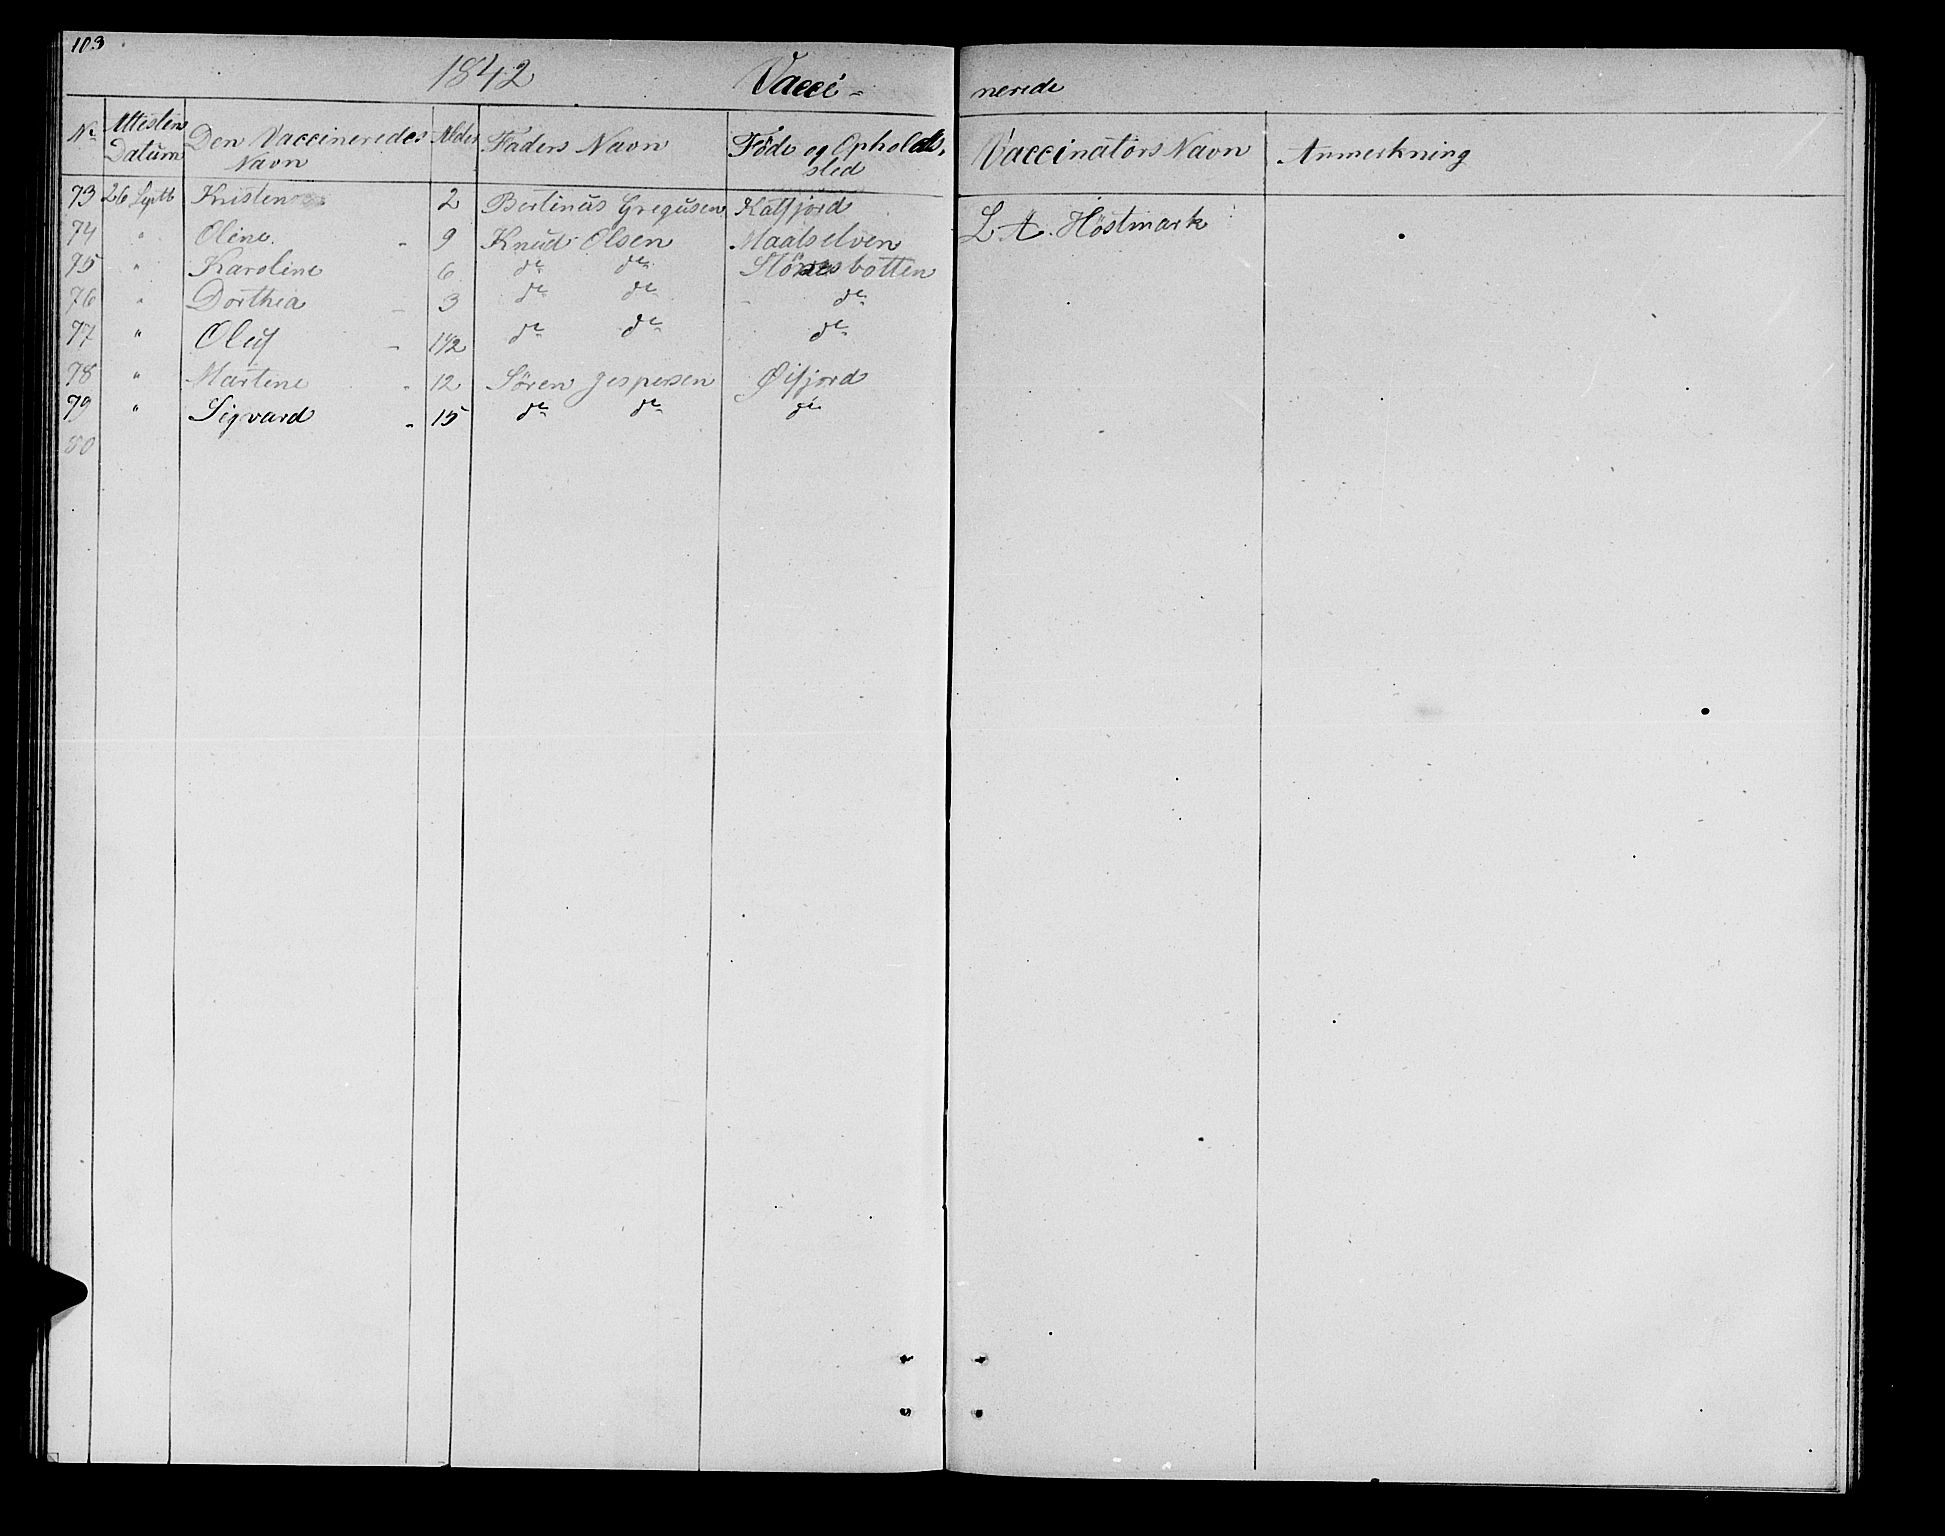 103
1842 Vacci- nerede
No Attestens Datum Den Vaccineredes Navn Alder Faders Navn Føde og Opholds. sted Vaccinatørs Navn Anmerkning
73 26 Septb Kristen 2 Bertinus Gregusen Katfjord L. A. Höstmark
74 " Oline. - 9 Knud Olsen Maalselven
75 " Karoline 6 do do Stönesbotten
76 " Dorthea - 3 do do - do
77 " Oluf - 1 1/2 do do do
78 " Martine - 12 Sören Jespersen Øifjord
79 " Sigvard - 15 do do do
80